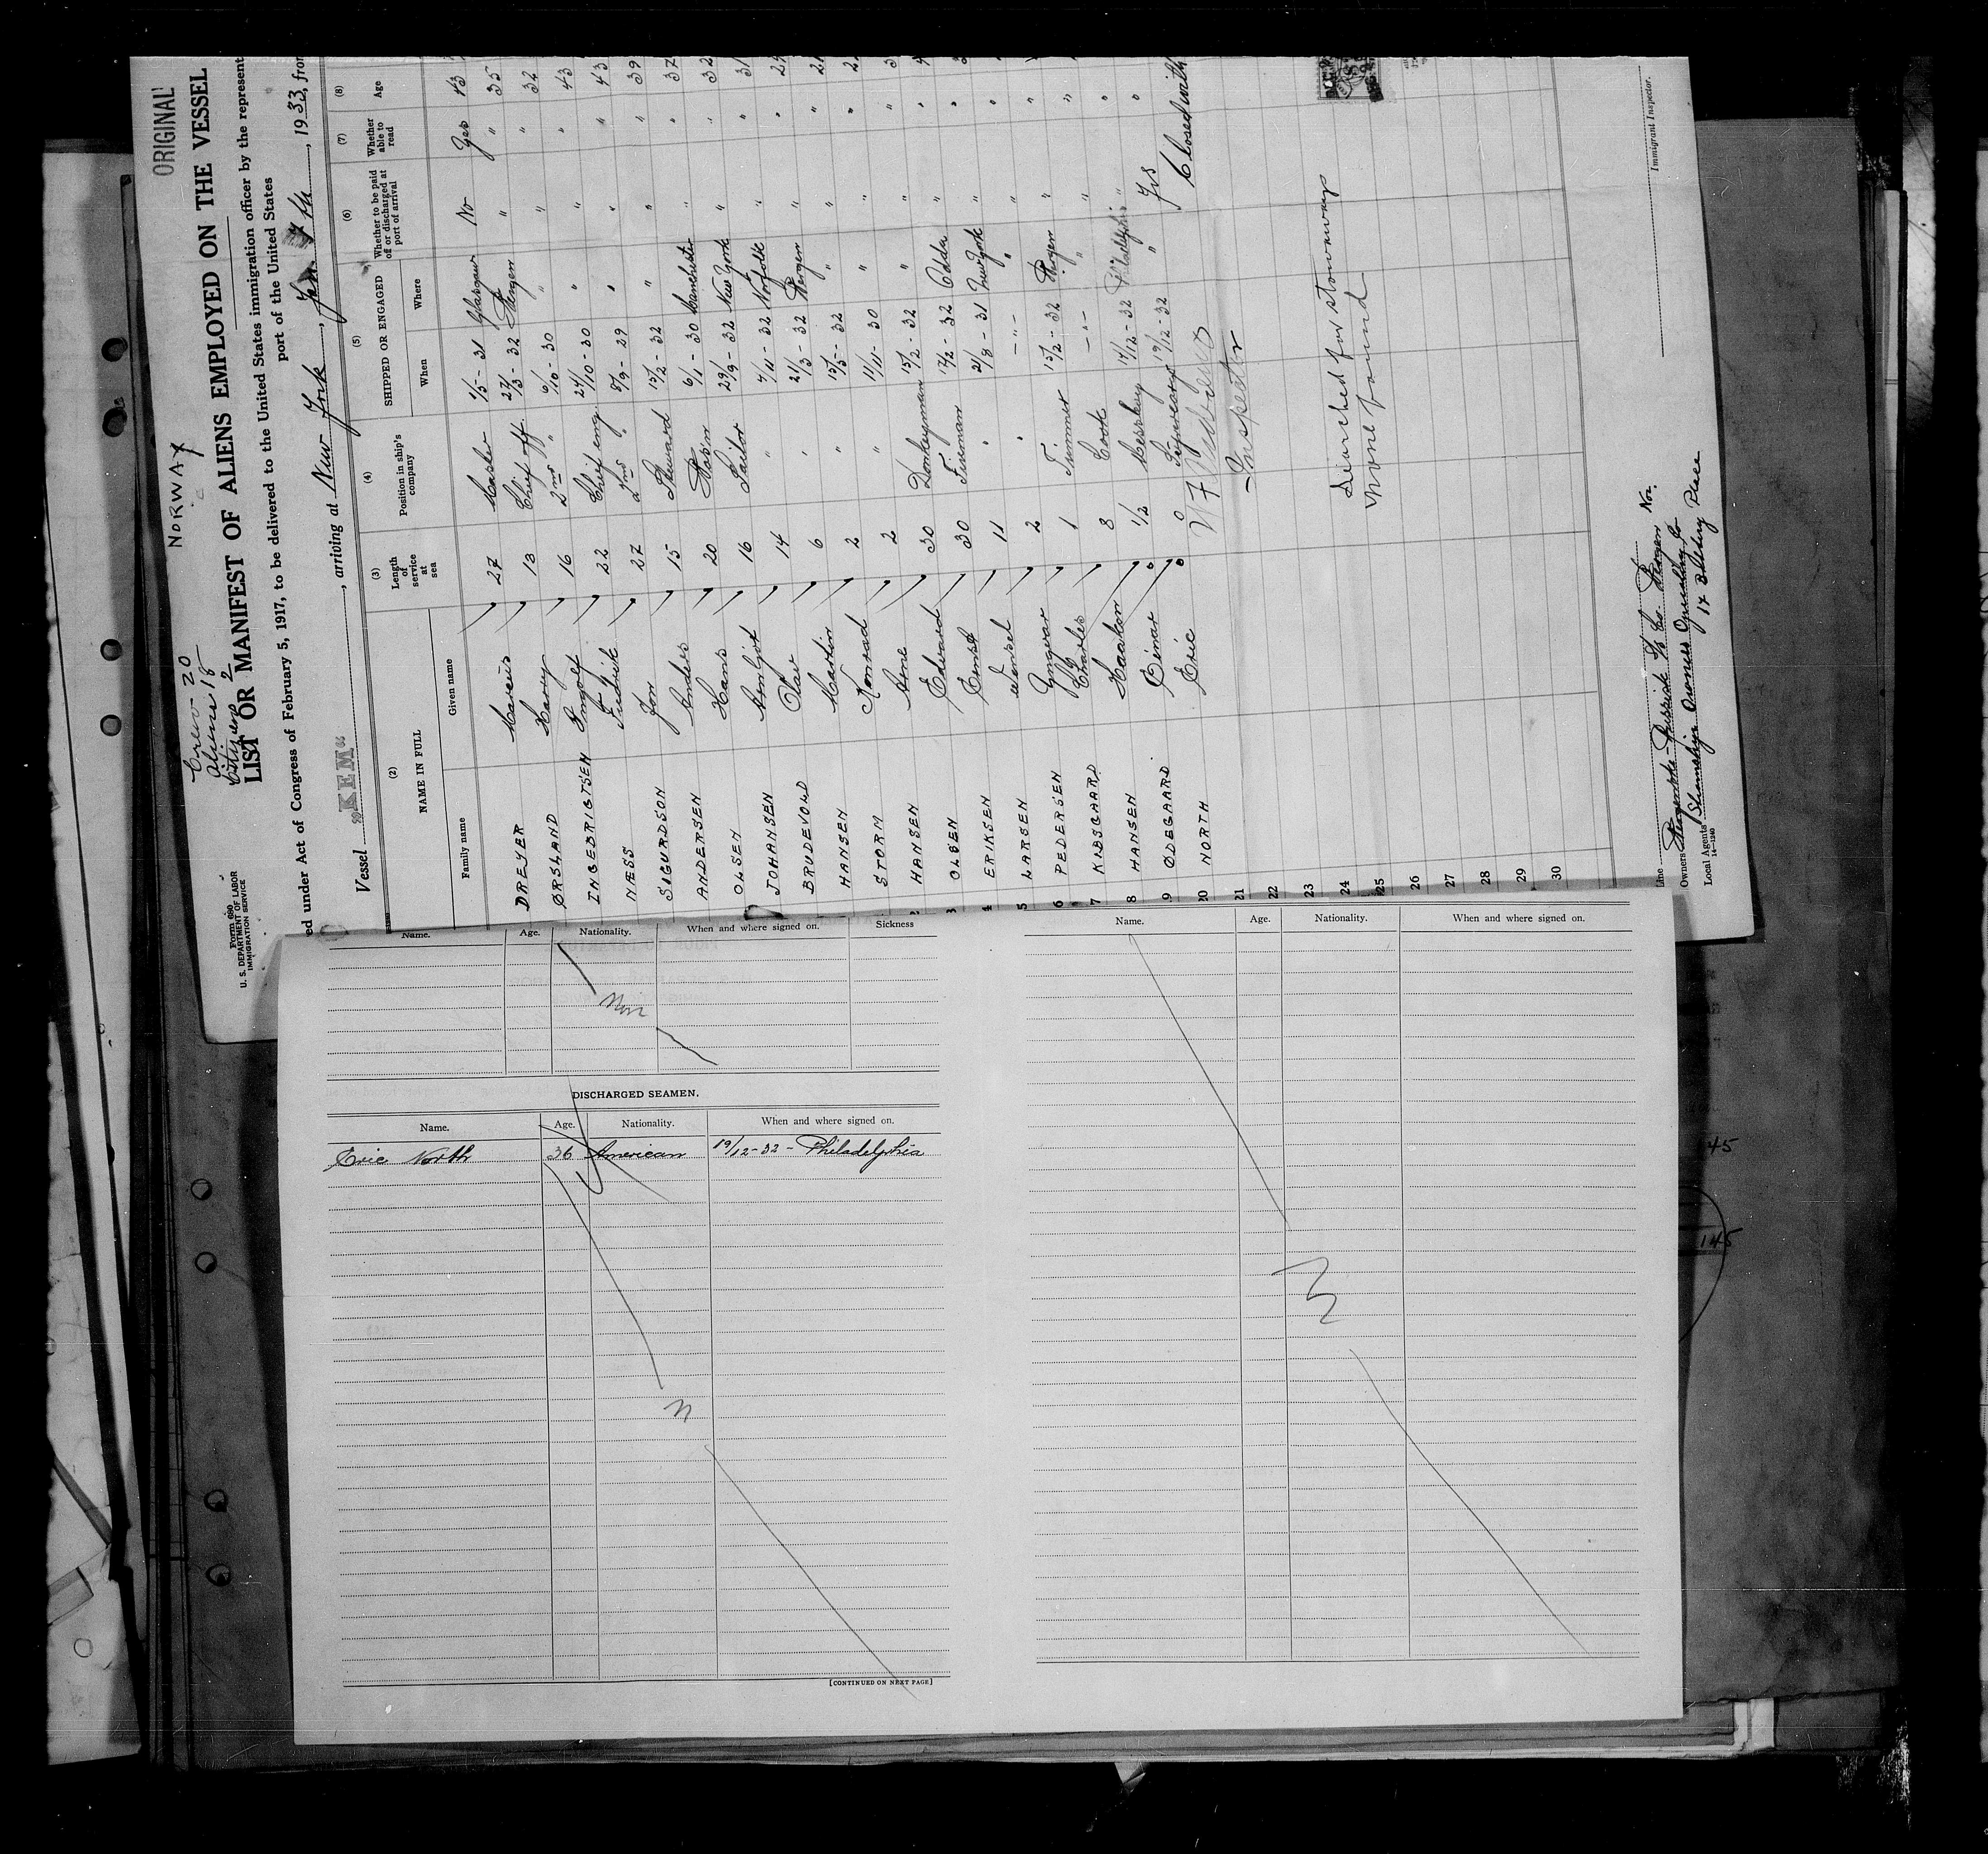 ORIGINAL
NORWAY
Crew 20
Aliens 18
Citizens 2
Form 680
U. S. DEPARTMENT OF LABOR
IMMIGRATION SERVICE
LIST OR MANIFEST OF ALIENS EMPLOYED ON THE VESSEL
ed under Act of Congress of February 5, 1917, to be delivered to the United States immigration officer by the represent
port of the United States
Vessel "KEM", arriving at New York, Jan 7th, 1933, from
(2) (3) (4) (5) (6) (7) (8)
NAME IN FULL Length of service at sea Position in ship's company SHIPPED OR ENGAGED Whether to be paid off or discharged at port of arrival Whether able to read Age
Family name Given name When Where
DREYER Marius 27 Master 1/5 - 31 Glasgow No Yes 43
ØRSLAND Harry 13 Chief off. 22/3 - 32 Bergen " " 35
INGEBRIGTSEN Ingolf 16 2nd " 6/10 - 30 " " " 32
NÆSS Fredrik 22 Chief eng. 24/10 - 30 " " " 43
SIGURDSON Jon 27 2nd " 8/9 - 29 " " " 43
ANDERSEN Anders 15 Steward 15/2 - 32 " " " 39
OLSEN Hans 20 Bos'n 6/1 - 30 Manchester " " 37
JOHANSEN Arnljot 16 Sailor 29/9 - 32 New York " " 32
BRUDEVOLD Olav 14 " 4/11 - 32 Norfolk " " 31
HANSEN Martin 6 " 21/3 - 32 Bergen " "
STORM Konrad 2 " 15/5 - 32 " " "
HANSEN Arne 2 " 11/11 - 30 " " "
OLSEN Edvard 30 Donkeyman 15/2 - 32 " " "
ERIKSEN Ernst 30 Fireman 12/2 - 32 Odda " "
LARSEN Wensel 11 " 21/8 - 31 New York " "
PEDERSEN Yngvar 2 " - " - " " "
KIBSGAARD Charles 1 Trimmer 15/2 - 32 Bergen " "
HANSEN Haakon 8 Cook - " - " " "
ØDEGAARD Einar 1/2 Messboy 14/12 - 32 Philadelphia " "
20 NORTH Eric 0 19/12 - 32 " Yes
21
22
23
24
25
26
27
28
29
30
Closed with
Inspector
Searched for stowaways
None found
Immigrant Inspector.
Line
Owners Bergen Nor.
Local Agents Shipowners Operating Co
17 Battery Place
14-1240
Name. Age. Nationality. When and where signed on. Sickness
DISCHARGED SEAMEN.
Name. Age. Nationality. When and where signed on.
Eric North 36 American 19/12-32 - Philadelphia
[CONTINUED ON NEXT PAGE]
Name. Age. Nationality. When and where signed on.
45
145